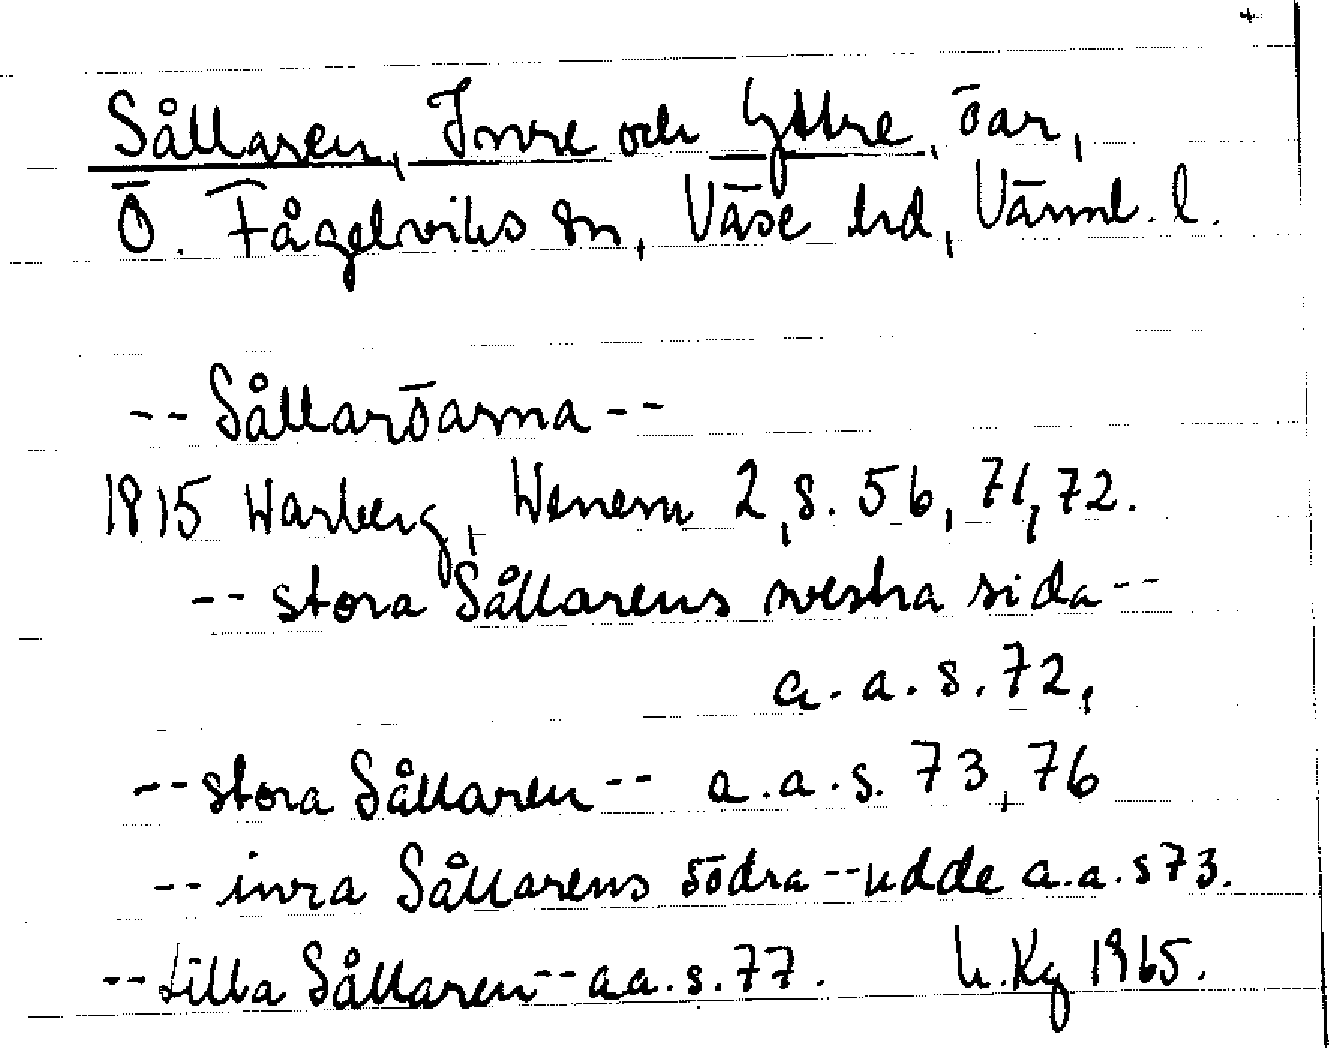 Sållaren, Inre och Yttre, öar,
Ö. Fågelviks sn, Väse hd, Värml. l.
-- Sållaröarna --
1815 Warberg, Wenern 2, s. 56, 71, 72.
-- stora Sållarens westra sida --
a. a. s. 72,
-- stora Sållaren -- a. a. s. 73, 76
-- inra Sållarens södra -- udde a. a. s 73.
-- Lilla Sållaren -- a a. s. 77. U. Kg 1965.